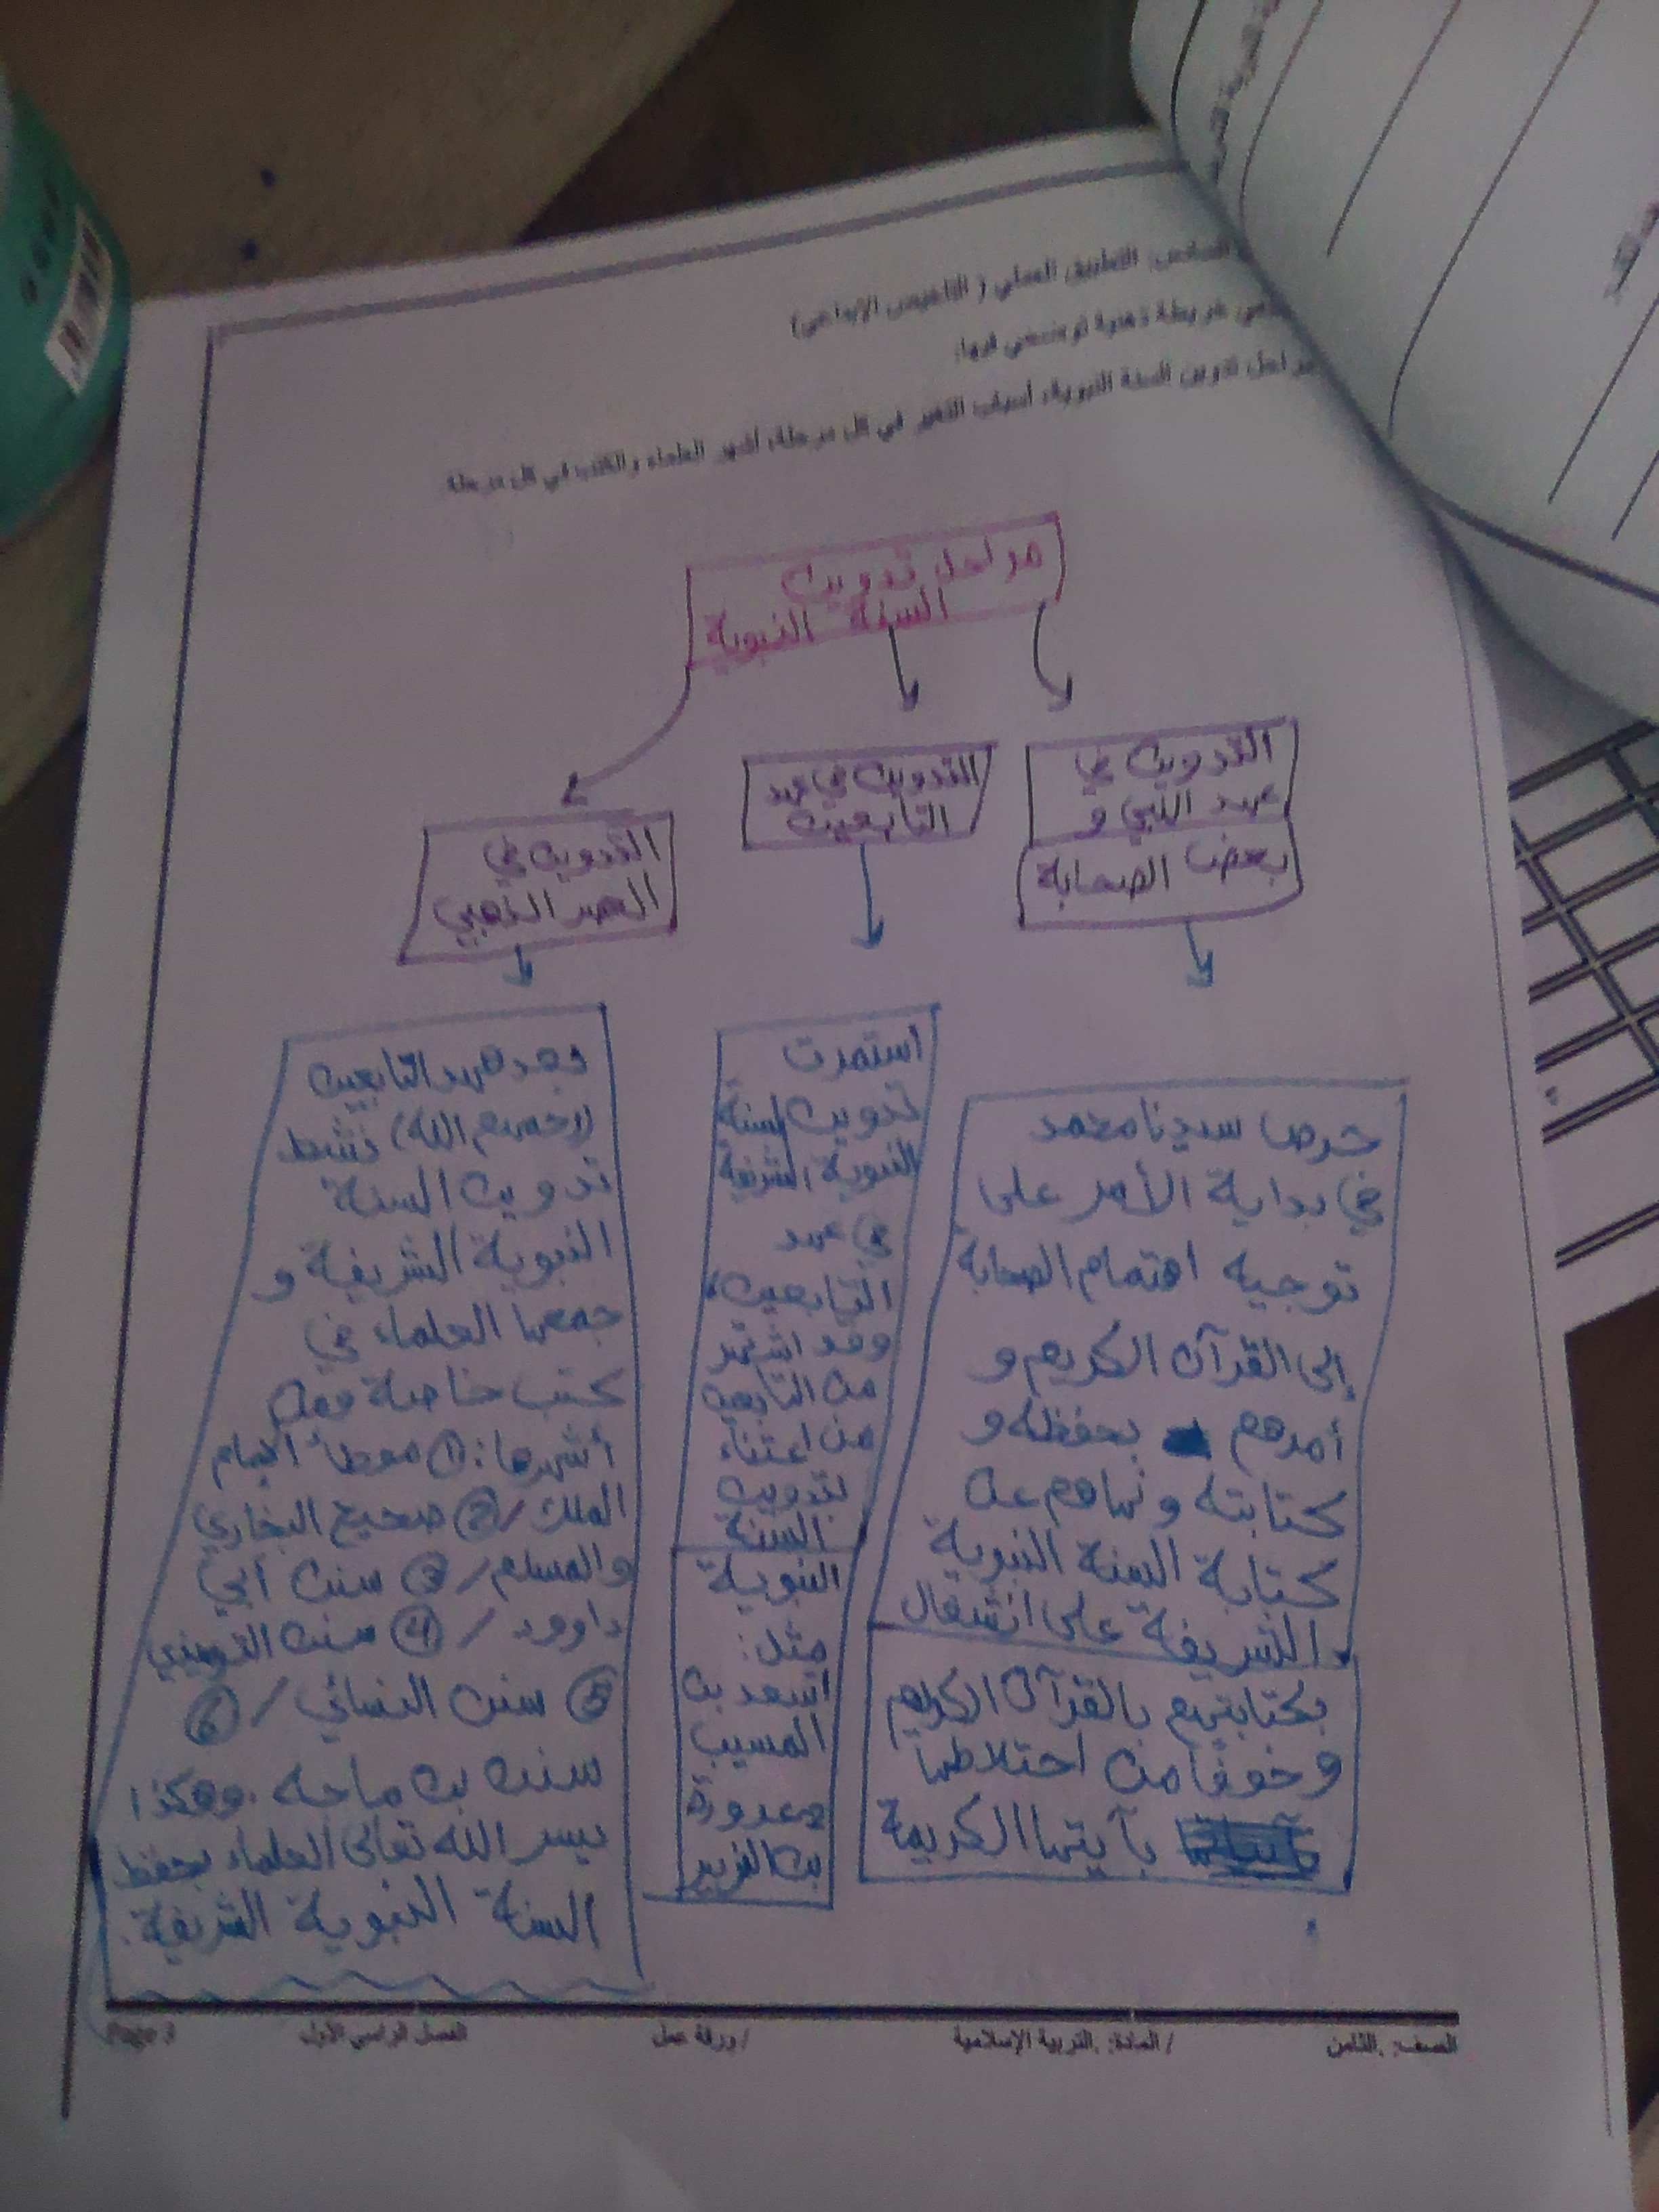 السادس: التطبيق العملي (التلخيص الإبداعي)
خريطة ذهنية توضحي فيها:
مراحل تدوين السنة النبوية، أسباب التغير في كل مرحلة، أشهر العلماء والكتب في كل مرحلة.
مراحل تدوين
السنة النبوية
التدوين في
عهد النبي و
بعض الصحابة
التدوين في عهد
التابعين
التدوين في
العصر الذهبي
حرص سيدنا محمد
في بداية الأمر على
توجيه اهتمام الصحابة
إلى القرآن الكريم و
أمرهم بحفظه و
كتابته ونهاهم عن
كتابة السنة النبوية
الشريفة على انشغال
بكتابتهم بالقرآن الكريم
وخوفا من اختلاطها
بآيتها الكريمة
استمرت
تدوين لسنة
النبوية الشريفة
في عهد
التابعين،
وقد اشتهر
من التابعين
من اعتناء
بتدوين
السنة
النبوية
مثل:
اسعد بن
المسيب
بن الزبير
بعد عهد التابعين
(رحمهم الله) نشط
تدوين السنة
النبوية الشريفة و
جمعها العلماء في
كتب خاصة
أشهرها: ① موطأ الإمام
الملك / ② صحيح البخاري
والمسلم / ③ سنن أبي
داوود / ④ سنن الترمذي
⑤ سنن النسائي / ⑥
سنن بن ماجه. وهكذا
يسر الله تعالى العلماء بحفظ
السنة النبوية الشريفة.
الصف: الثامن / المادة: التربية الإسلامية / ورقة عمل الفصل الدراسي الأول Page 3